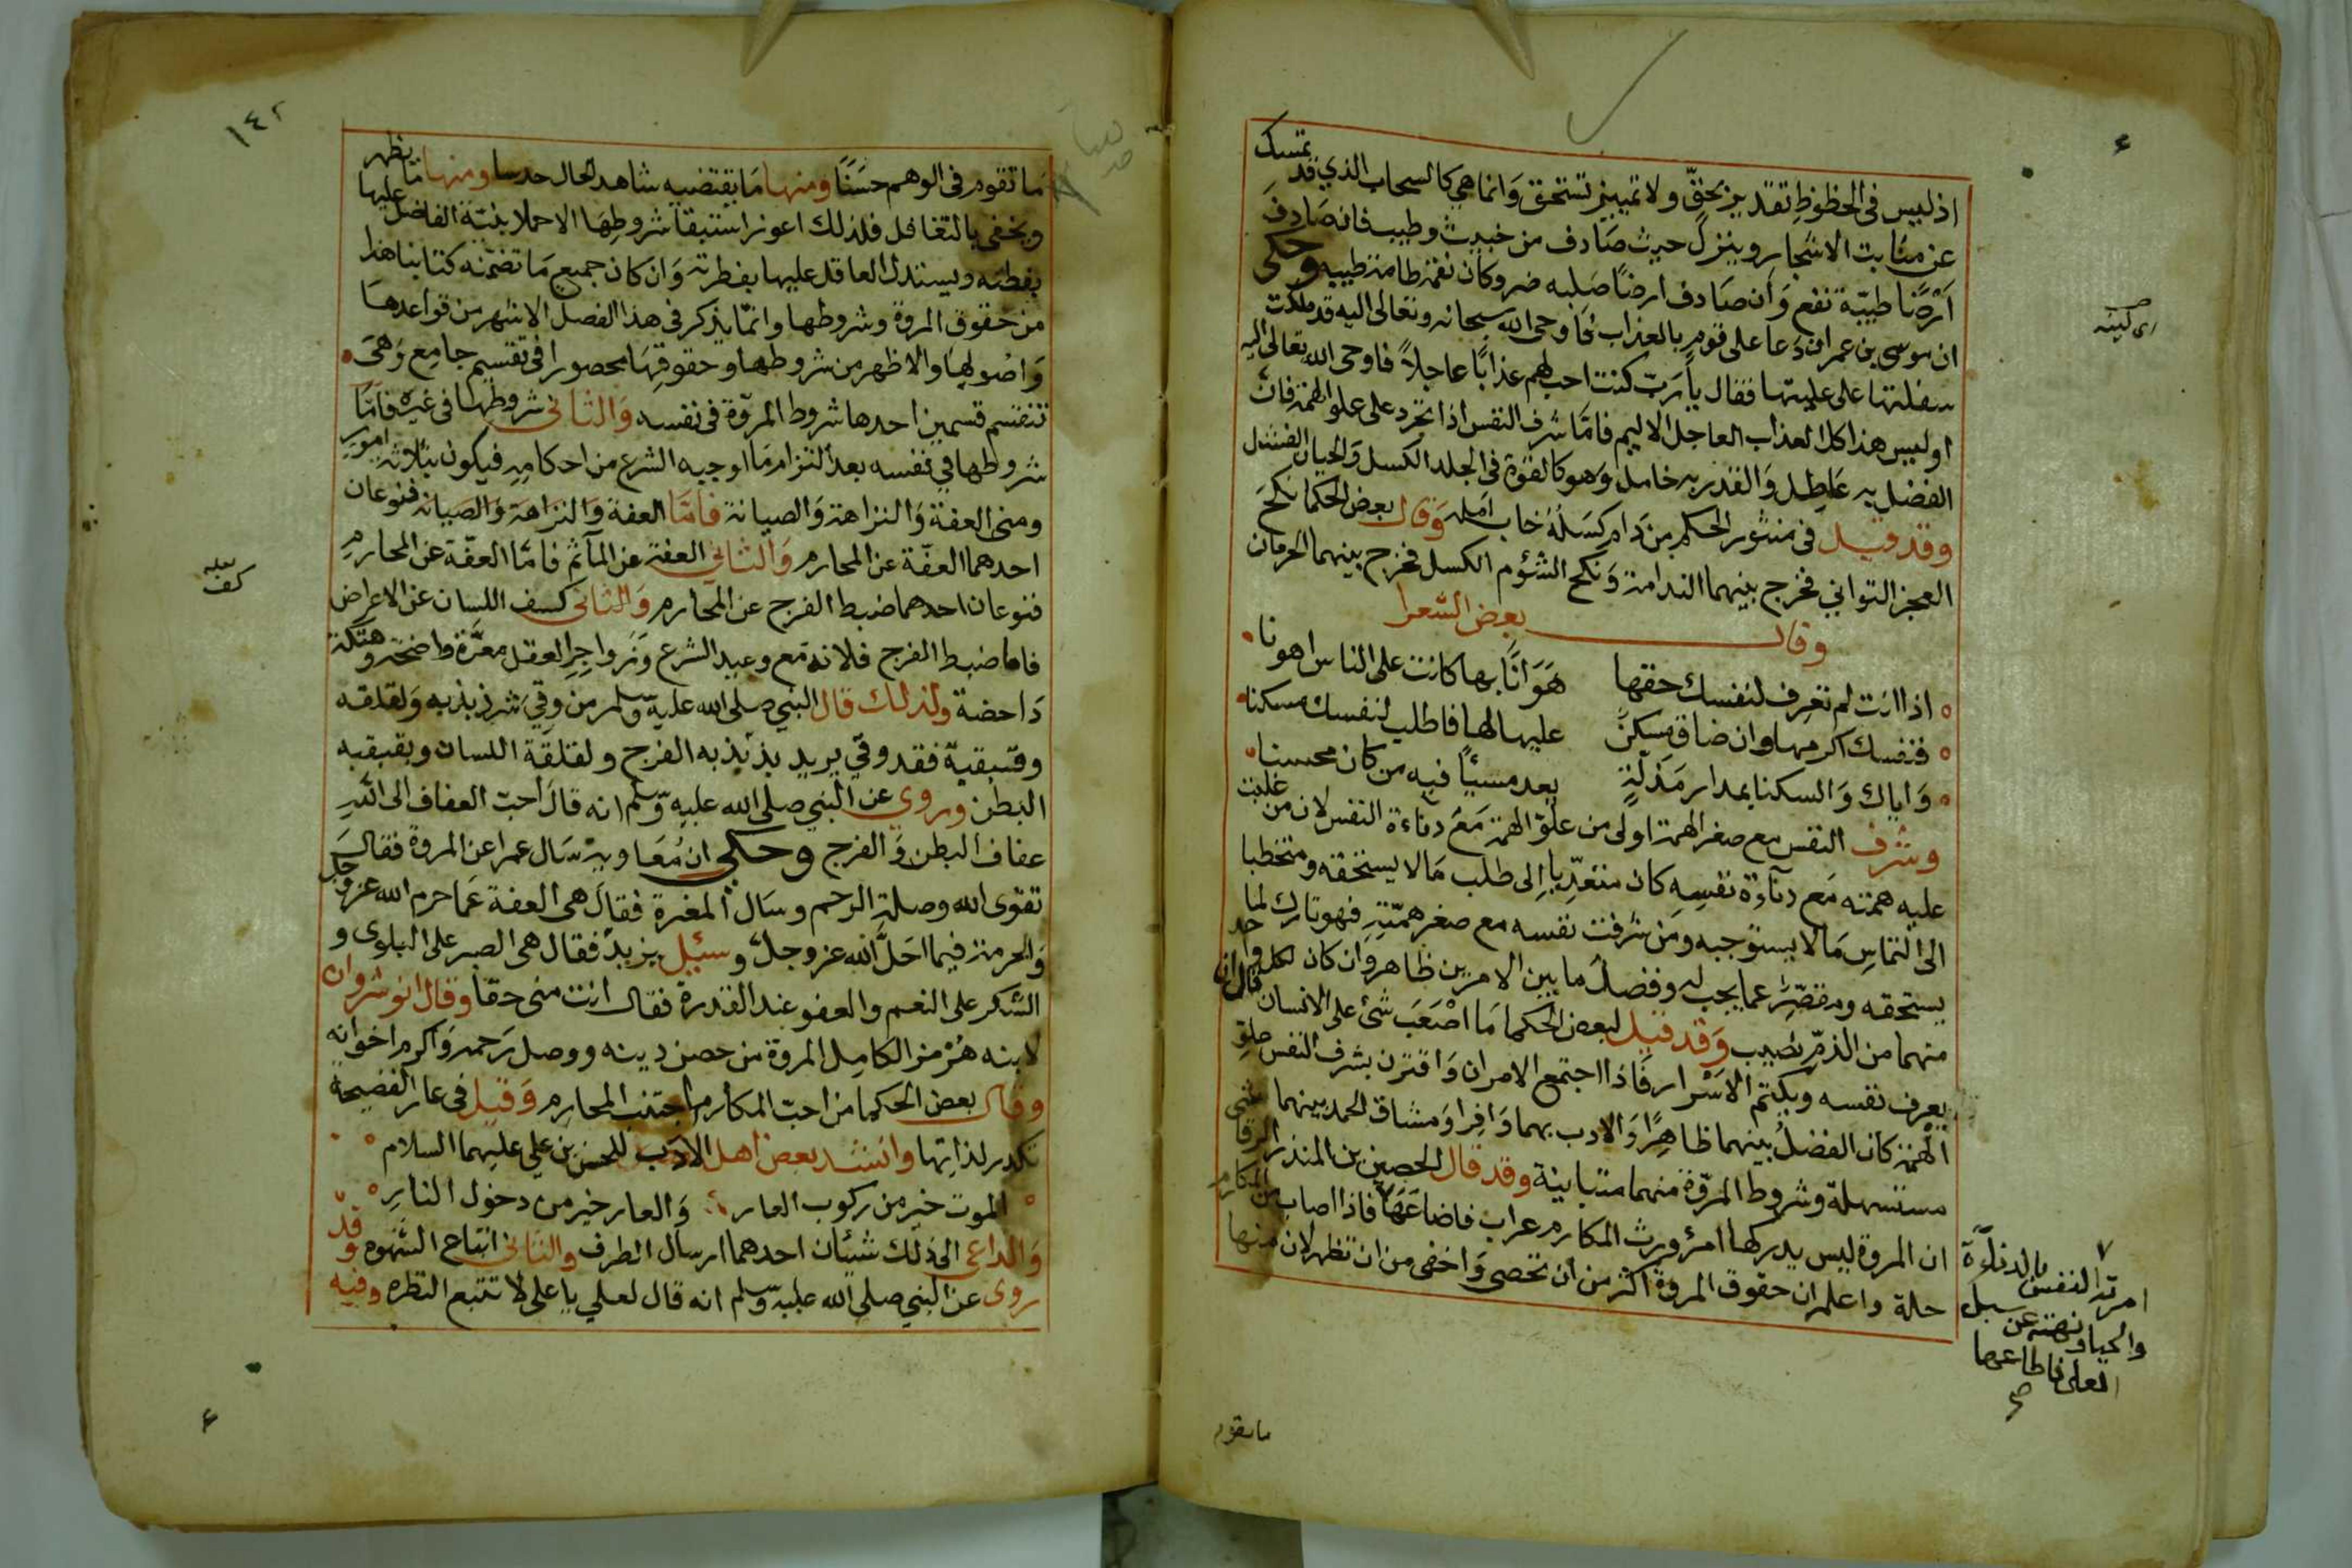 تمسك
اذ ليس فى الحظوظ تقدير بحقّ ولا تمييز تستحق وَانما هي كالسحاب الذي قد
عن منابت الاشجار وينزل حيث صَادف من خبيث وطيب فان صَادف
اَرْضًا طيبّة نفع وَان صَادف ارضًا صَلبه ضر وكان نقمة طامة طيبه وحكى
ان موسى بن عمران دَعا على قومٍ بالعذاب فاوحى الله سبحانه وتعالى اليه قد ملكت
سفلتها على عليتها فقال ياَ رَبّ كنت احب لهم عذابًا عاجلاً فاوحى الله تعالى اليه
اوليس هذا كل العذاب العاجل الاليم فامّا شرف النفس اذا تجرد على علو الهمة فان
الفضل به عَاطِل وَالقدر به خامل وَهو كالقوة فى الجلد الكسل وَالجبان الفشل
وقد قيل فى منثور الحكم من دَام كِسَلُهُ خاب امَله وَقال بعض الحكما نكح
العجز التواني فخرج بينهما الندامة وَنكح الشؤم الكسل فخرج بينهما الحرمان
وقال بعض الشعرا
اذا انت لم تعرِف لنفسك حقها هَوَانًا بها كانت على الناس اهونا
فنفسك اكرمها وان ضاق مسكنٌ عليها لها فاطلب لنفسك مسكنا
وَاياك وَالسكنا بدار مَذلّةٍ يعد مسيئًا فيه من كان محسنا
وشرف النفس مع صغر الهمة اولى من علوّ الهمّة مَعَ دناءة النفس لان من غلبت
عليه همته مَع دناءة نفسِه كان متعدّيا اِلى طلب مَا لا يستحقه ومتخطيا
الى التماس مَا لا يستوجبه ومَن شرفت نفسه مع صغر همّتِهِ فهو تارك لما
يستحقه ومقصِّر عما يجب له وفضلُ ما بين الامرين ظاهر وَان كان لكل واحد
منهما من الذمّ نصيب وَقد قيل لبعض الحكما مَا اصْعَبَ شئ على الانسان قال ان
يعرف نفسه ويكتم الاسْرار فَاذا اجتمع الامران وَاقترن بشرف النفس علو
الهمّة كان الفضلُ بينهما ظاهِرًا وَالادب بهما وَافِرا وَمشاق الحمد بينهما
مستسهلة وشروط المرّوة منهما متباينة وقد قال الحصين بن المنذر الرقاشي
ان المروة ليس يدركها امرؤ ورث المكارم عراب فاضاعَهَا فاذا اصاب من المكارم
حلة واعلم ان حقوق المروة اكثر من ان تحصى وَاخفى من ان تظهر لان منها
امرته النفس بالدناءة
والحيا ونهته عن سبل
العلى فاطاعها
صح
ما تقوم
١٤٢
مَا تقوم فى الوهم حسَنًا ومنها مَا يقتضيه شاهد الحال حدسا ومنها ما يظهر
ويخفى بالتغافل فلذلك اعوز استيفا شروطِهَا الا حملا ينبّه الفاضل عليها
بفطنته ويستدل العاقد عليها بفطرته وَان كان جميع مَا تضمّنه كتابنا هذا
من حقوق المروة وشروطها وانمّا يذكر فى هذا الفصل الاشهر من قواعدها
وَاصُولهَا والاظهر من شروطها وحقوقِهَا محصورا فى تقسيم جامع وَهىَ
تنقسم قسمين احدها شروط المروّة فى نفسه وَالثانى شروطها فى غيره فامّا
شروطها في نفسه بعد التزام مَا اوجبه الشرع من احكامِهِ فيكون بثلاثة امور
ومنى العفة وَالنزاهة وَالصيانة فامّا العفة وَالنزاهة وَالصيانة فنوعان
احدهما العفّة عن المحارم وَالثاني العفة عن المآثم فامّا العفّة عن المحارم
فنوعان احدهما ضبط الفرج عن المحارم وَالثانى كسف اللسان عن الاعراض
كف
فاما ضبط الفرج فلانه مَع وعيد الشرع وَزواجِرِ العقل معرَّة واضحة وهتكة
دَاحضة ولذلك قال النبي صلى الله عليه وسلم من وقي شر ذبذبه وَلقلقه
وقبقبه فقد وقى يريد بذبذبه الفرج ولقلقة اللسان وبقبقبه
البَطن وروى عن النبي صلى الله عليه وسلم انه قالَ احبّ العفاف الى اللهِ
عفاف البطن وَالفرج وحكي ان مُعَاويه سَال عمرا عن المروة فقال
تقوى الله وصلة الرحم وسَال المغيرة فقال هى العفة عَما حرم الله عز وجل
وَالحرمة فيما احَلَّ الله عز وجل وسئِل يزيد فقال هى الصبر على البلوى و
الشكر على النعم والعفو عند القدرة فقال انت منى حقا وقال انوشروان
لابنه هُرْمز الكامل المروة من حصن دينه ووصل رَحمه وَاكرم اخوانه
وقال بعض الحكما من احبّ المكارم اجتنب المحارم وَقيل فى عار الفضيحة
تكدير لذاتها وانشد بعض اهل الادب للحسن بن علي عليهما السلام
الموت خير من ركوب العار وَالعار خير من دخول النارِ
وَالداعى الى ذلك شيئان احدهما ارسال الطرف والثانى اتباع الشهوه وقد
روى عن النبي صلى الله عليه وسلم انه قال لعلي يا على لا تتبع النظره وفيه